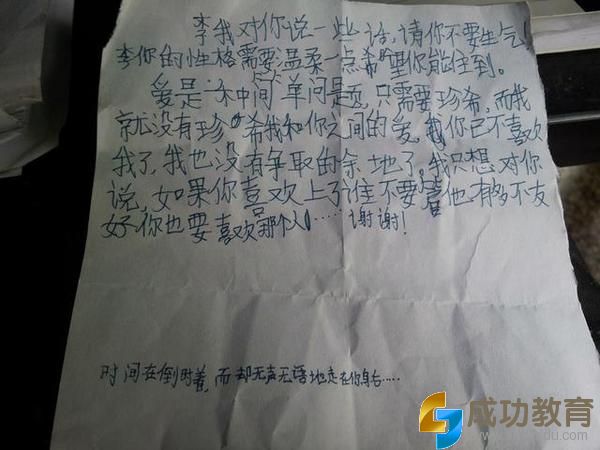 李我对你说一些话,请你不要生气
李你的性格需要温柔一点希望你能住到。
爱是一种间单问题,只需要珍希,而我
就没有珍希我和你之间的爱,你已不喜欢
我了,我也没有争取的余地了,我只想对你
说,如果你喜欢上了谁不要管他有多不友
好你也要喜欢那个人……谢谢!
时间在倒时着,而却无声无语地走在你身右....
成功教育
www.edu.com